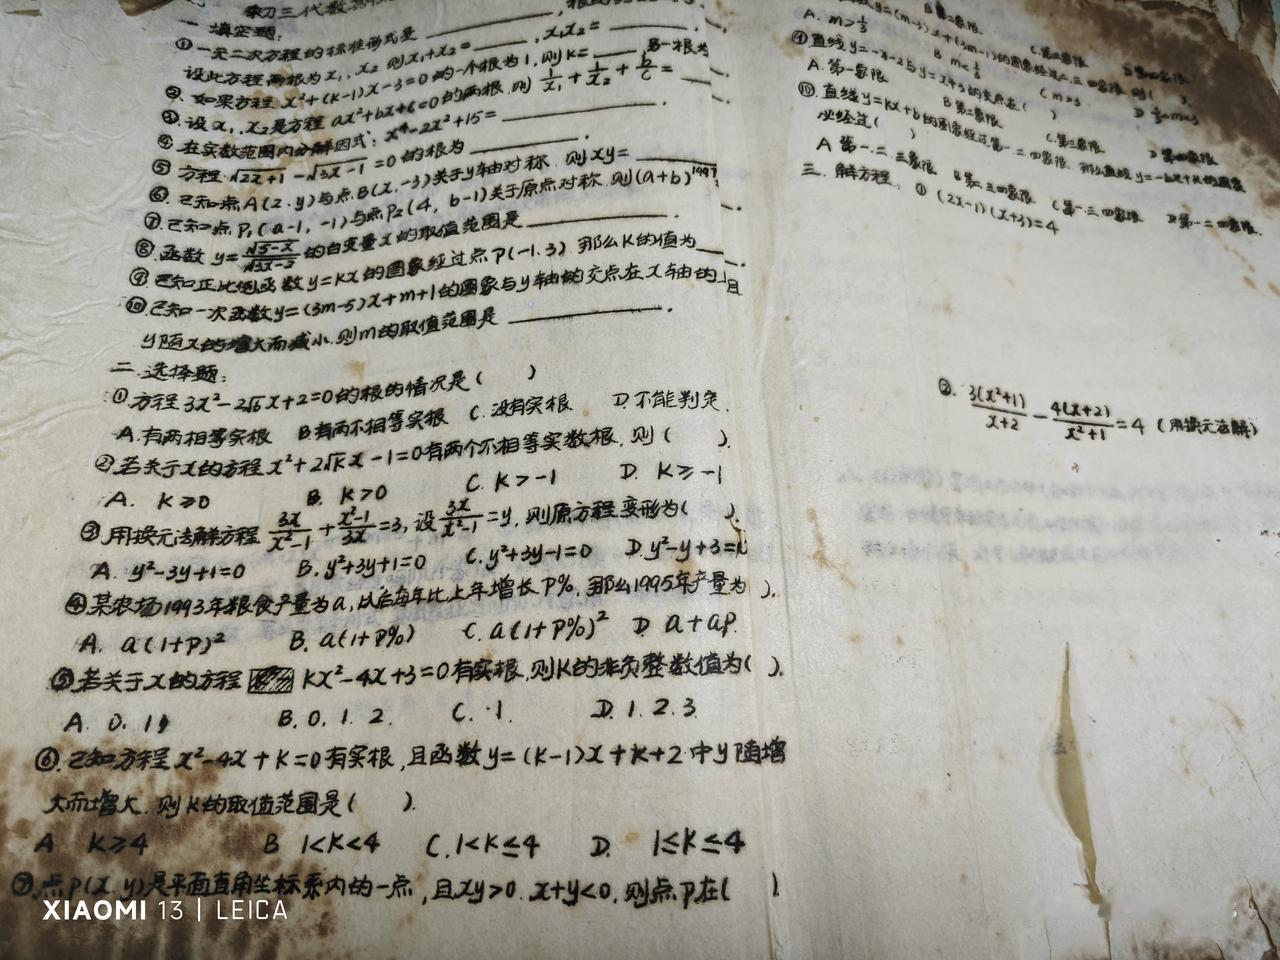 初三代数
一 填空题:
①一元二次方程的标准形式是______,
设此方程两根为x₁, x₂ 则x₁+x₂=____, x₁x₂=____
②. 如果方程 x²+(k-1)x-3=0的一个根为1,则k=____,另一根为
③. 设x₁, x₂是方程 ax²+bx+c=0的两根,则 1/x₁+1/x₂+b/c=____
④ 在实数范围内分解因式: x⁴-2x²+15=____
⑤ 方程 √(2x+1)-√(3x-1)=0的根为____.
⑥. 已知点A(2.y)与点B(x,-3)关于y轴对称.则xy=____
⑦.已知点P₁(a-1,-1)与点P₂(4, b-1)关于原点对称.则(a+b)¹⁹⁹⁷
⑧.函数 y=√(5-x)/√(3x-2)的自变量x的取值范围是____.
⑨ 已知正比例函数y=kx的图象经过点P(-1.3).那么k的值为____.
⑩.已知一次函数y=(3m-5)x+m+1的图象与y轴的交点在x轴的上且
y随x的增大而减小.则m的取值范围是____.
二.选择题:
①方程3x²-2√6x+2=0的根的情况是( )
A.有两相等实根 B.有两不相等实根 C.没有实根 D.不能判定.
②若关于x的方程x²+2√kx-1=0有两个不相等实数根,则( ).
A. k≥0 B. k>0 C. k>-1 D. k≥-1
③.用换元法解方程 3x/(x²-1)+(x²-1)/3x=3, 设3x/(x²-1)=y,则原方程变形为( ).
A. y²-3y+1=0 B.y²+3y+1=0 C.y²+3y-1=0 D.y²-y+3=
④某农场1993年粮食产量为a,以后每年比上年增长P%,那么1995年产量为 ).
A. a(1+P)² B. a(1+P%) C. a(1+P%)² D. a+aP.
⑤.若关于x的方程 kx²-4x+3=0有实根,则k的非负整数值为( ).
A. 0. 1 B.0. 1. 2. C. 1. D. 1. 2. 3.
⑥.已知方程x²-4x+k=0有实根,且函数y=(k-1)x+k+2中y随增
大而增大.则k的取值范围是( ).
A k≥4 B 1<k<4 C.1<k≤4 D. 1≤k≤4
⑦.点P(x.y)是平面直角坐标系内的一点,且xy>0. x+y<0,则点P在( )
B 第二象限
A. m>1/3 B m<1/3 C m>3
A.第一象限 B 第二象限 C.第三象限 D 第四象限
⑩.直线y=kx+b的图象经过第一二四象限.那么直线y=-bx+k的图象
必经过( )
A 第一.二.三象限 B 第二三四象限 C 第一三四象限 D 第一二四象限.
三.解方程: ① (2x-1)(x+3)=4
②. 3(x²+1)/(x+2)-4(x+2)/(x²+1)=4 (用换元法解)
XIAOMI 13 | LEICA